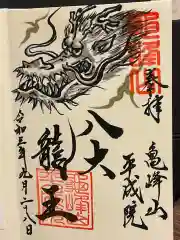 奉拝
亀峰山
平成院
八大
龍王
令和三年九月二十八日